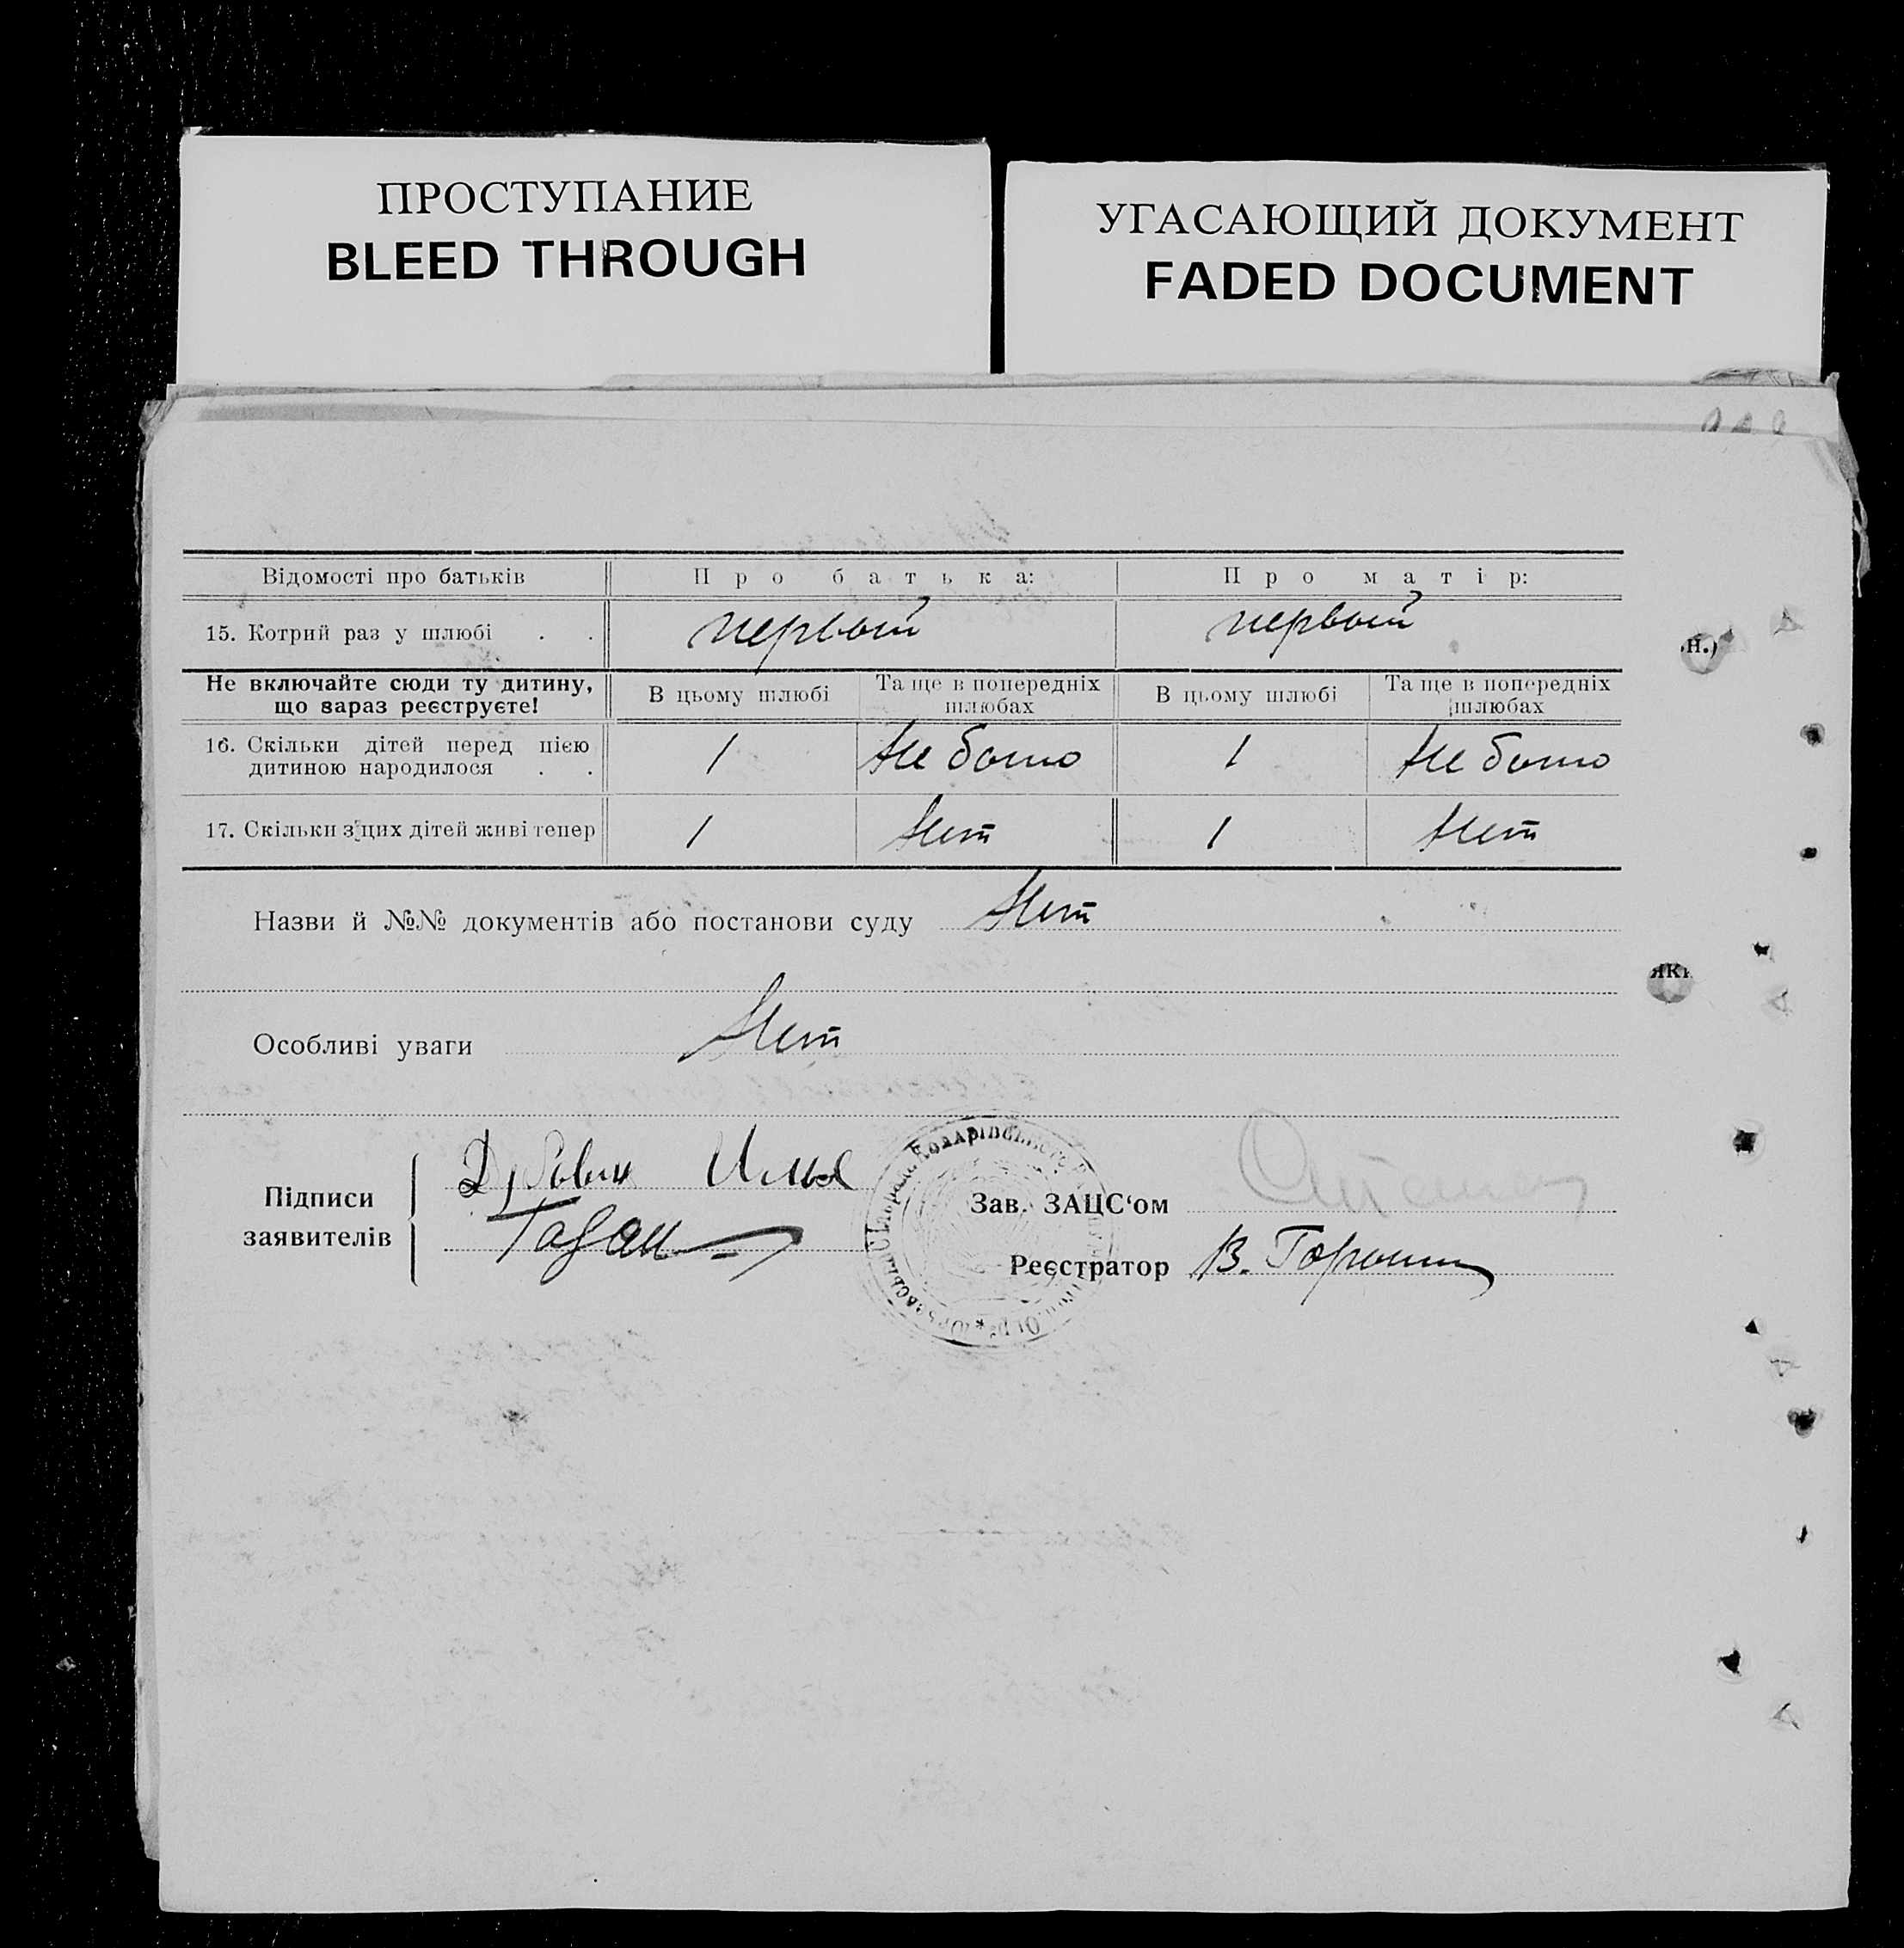 ПРОСТУПАНИЕ
BLEED THROUGH
УГАСАЮЩИЙ ДОКУМЕНТ
FADED DOCUMENT
Відомості про батьків Про батька: Про матір:
15. Котрий раз у шлюбі . . первый первый
н.)
Не включайте сюди ту дитину, що зараз реєструєте! В цьому шлюбі Та ще в попередніх шлюбах В цьому шлюбі Та ще в попередніх шлюбах
16. Скільки дітей перед цією дитиною народилося . . 1 Не было 1 Не было
17. Скільки з цих дітей живі тепер 1 Нет 1 Нет
Назви й №№ документів або постанови суду Нет
яки
Особливі уваги Нет
Підписи заявителів
Илья
Зав. ЗАЦС‘ом
Реєстратор В.